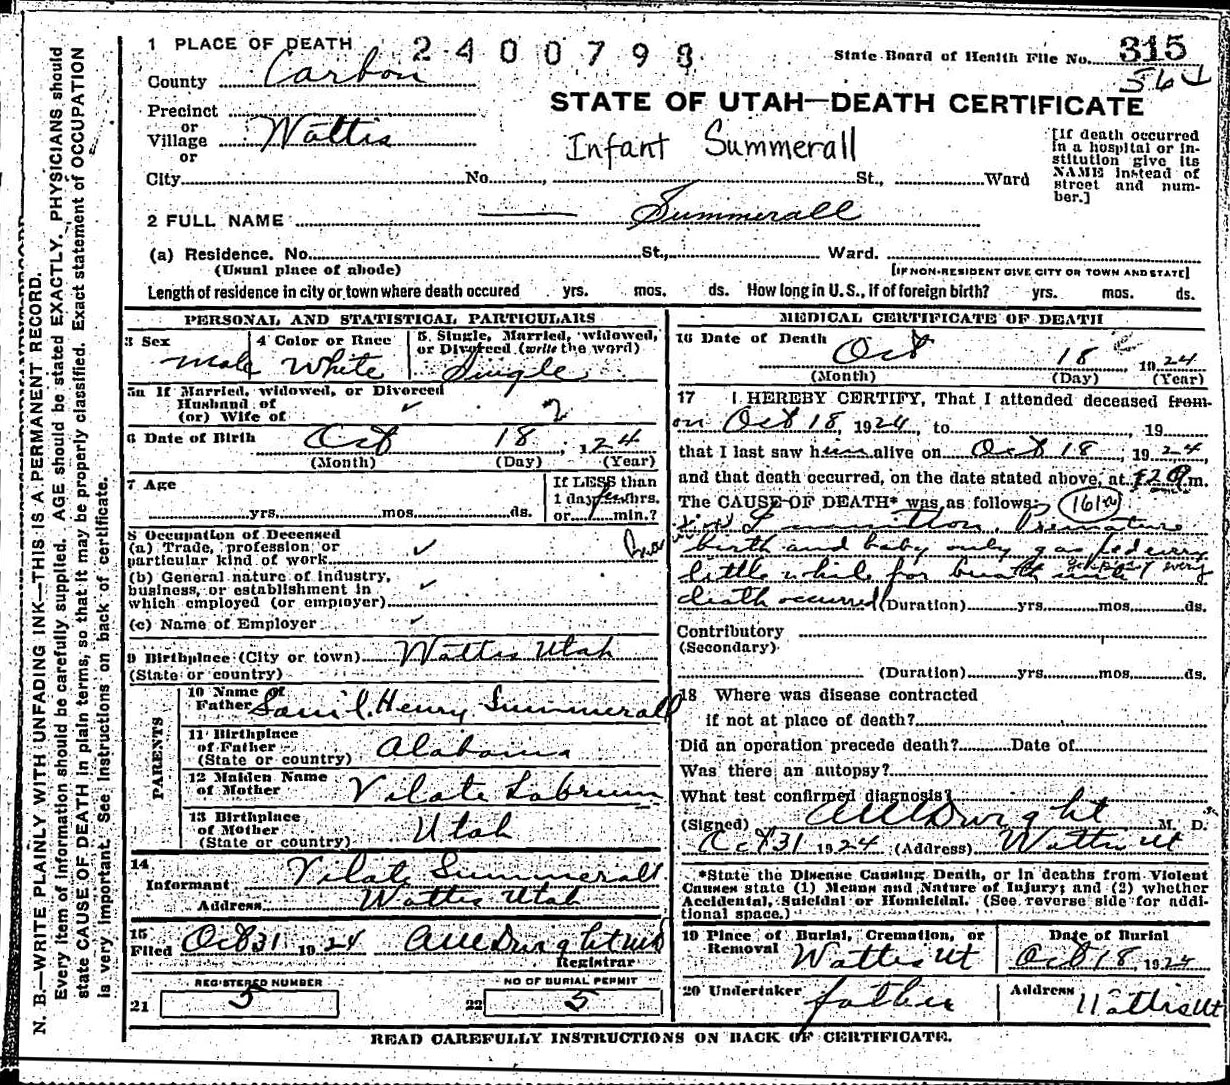 1 PLACE OF DEATH 2400798
State Board of Health File No. 315
County Carbon
56
STATE OF UTAH—DEATH CERTIFICATE
Precinct
or
Village Wattis
or
Infant Summerall
[If death occurred
in a hospital or in-
stitution give its
NAME instead of
street and num-
ber.]
City No. St., Ward
2 FULL NAME — Summerall
(a) Residence. No. St., Ward.
(Usual place of abode) [IF NON-RESIDENT GIVE CITY OR TOWN AND STATE]
Length of residence in city or town where death occured yrs. mos. ds. How long in U. S., if of foreign birth? yrs. mos. ds.
PERSONAL AND STATISTICAL PARTICULARS
3 Sex 4 Color or Race 5 Single, Married, Widowed,
or Divorced (write the word)
Male White Single
5a If Married, widowed, or Divorced
Husband of
(or) Wife of
6 Date of Birth Oct 18, 1924
(Month) (Day) (Year)
7 Age If LESS than
1 day hrs.
yrs. mos. ds. or min.?
8 Occupation of Deceased
(a) Trade, profession or
particular kind of work
(b) General nature of industry,
business, or establishment in
which employed (or employer)
(c) Name of Employer
9 Birthplace (City or town) Wattis Utah
(State or country)
PARENTS
10 Name of
Father Saml. Henry Summerall
11 Birthplace
of Father Alabama
(State or country)
12 Maiden Name
of Mother Vilate Labrum
13 Birthplace
of Mother Utah
(State or country)
14
Informant Vilate Summerall
Address Wattis Utah
15
Filed Oct 31 1924 AWDwight MD
Registrar
REGISTERED NUMBER NO OF BURIAL PERMIT
21 5 22 5
MEDICAL CERTIFICATE OF DEATH
16 Date of Death Oct 18 1924
(Month) (Day) (Year)
17 I HEREBY CERTIFY, That I attended deceased from
on Oct 18, 1924, to , 19
that I last saw him alive on Oct 18, 1924
and that death occurred, on the date stated above, at m.
The CAUSE OF DEATH* was as follows: 161
Premature
birth and baby only gasped every
little while for breath until
gasped every
death occurred (Duration) yrs. mos. ds.
Contributory
(Secondary)
(Duration) yrs. mos. ds.
18 Where was disease contracted
if not at place of death?
Did an operation precede death? Date of
Was there an autopsy?
What test confirmed diagnosis?
(Signed) AWDwight M. D.
Oct 31 1924 (Address) Wattis Ut
*State the Disease Causing Death, or in deaths from Violent
Causes state (1) Means and Nature of Injury; and (2) whether
Accidental, Suicidal or Homicidal. (See reverse side for addi-
tional space.)
19 Place of Burial, Cremation, or Date of Burial
Removal Wattis Ut Oct 18, 1924
20 Undertaker father Address Wattis Ut
READ CAREFULLY INSTRUCTIONS ON BACK OF CERTIFICATE.
N. B.—WRITE PLAINLY WITH UNFADING INK—THIS IS A PERMANENT RECORD.
Every item of information should be carefully supplied. AGE should be stated EXACTLY. PHYSICIANS should
state CAUSE OF DEATH in plain terms, so that it may be properly classified. Exact statement of OCCUPATION
is very important. See instructions on back of certificate.